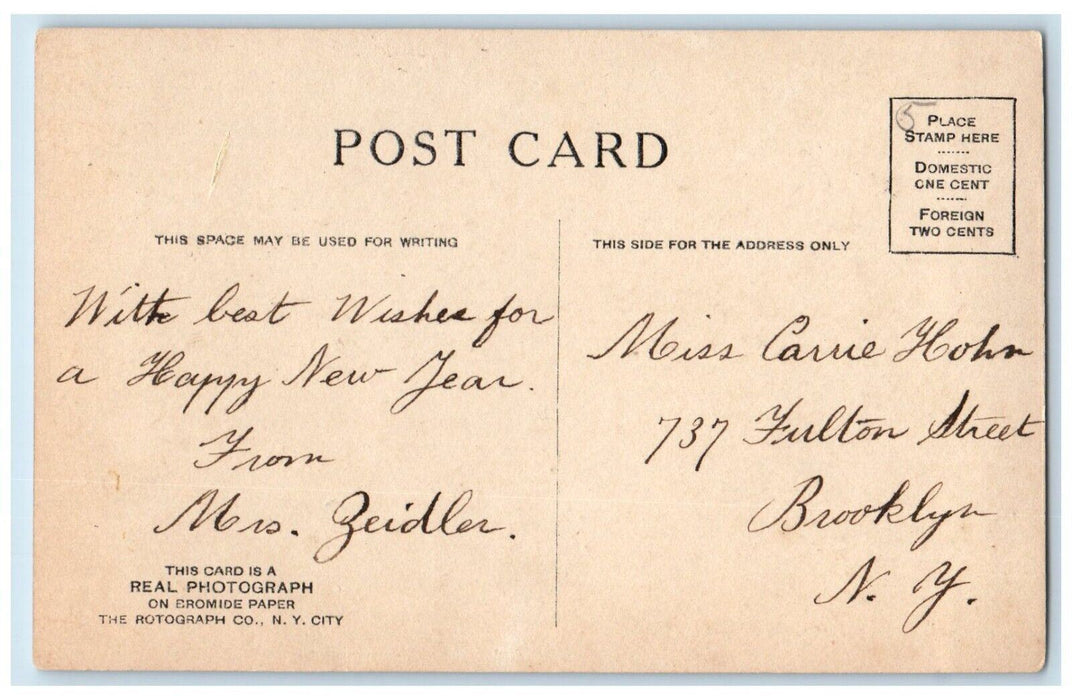 POST CARD
PLACE
STAMP HERE
DOMESTIC
ONE CENT
FOREIGN
TWO CENTS
5
THIS SPACE MAY BE USED FOR WRITING
With best Wishes for
a Happy New Year.
From
Mrs. Zeidler.
THIS CARD IS A
REAL PHOTOGRAPH
ON BROMIDE PAPER
THE ROTOGRAPH CO., N. Y. CITY
THIS SIDE FOR THE ADDRESS ONLY
Miss Carrie Hohn
737 Fulton Street
Brooklyn
N. Y.